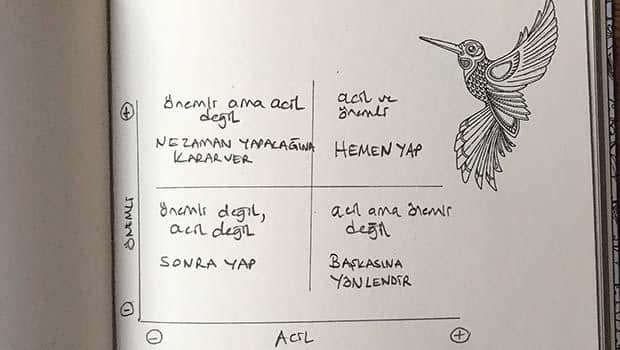 önemli ama acil
değil
NE ZAMAN YAPACAĞINA
KARAR VER
acil ve
önemli
HEMEN YAP
önemli değil,
acil değil
SONRA YAP
acil ama önemli
değil
BAŞKASINA
YÖNLENDİR
+
ÖNEMLİ
-
-
ACİL
+